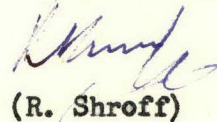 (R. Shroff)